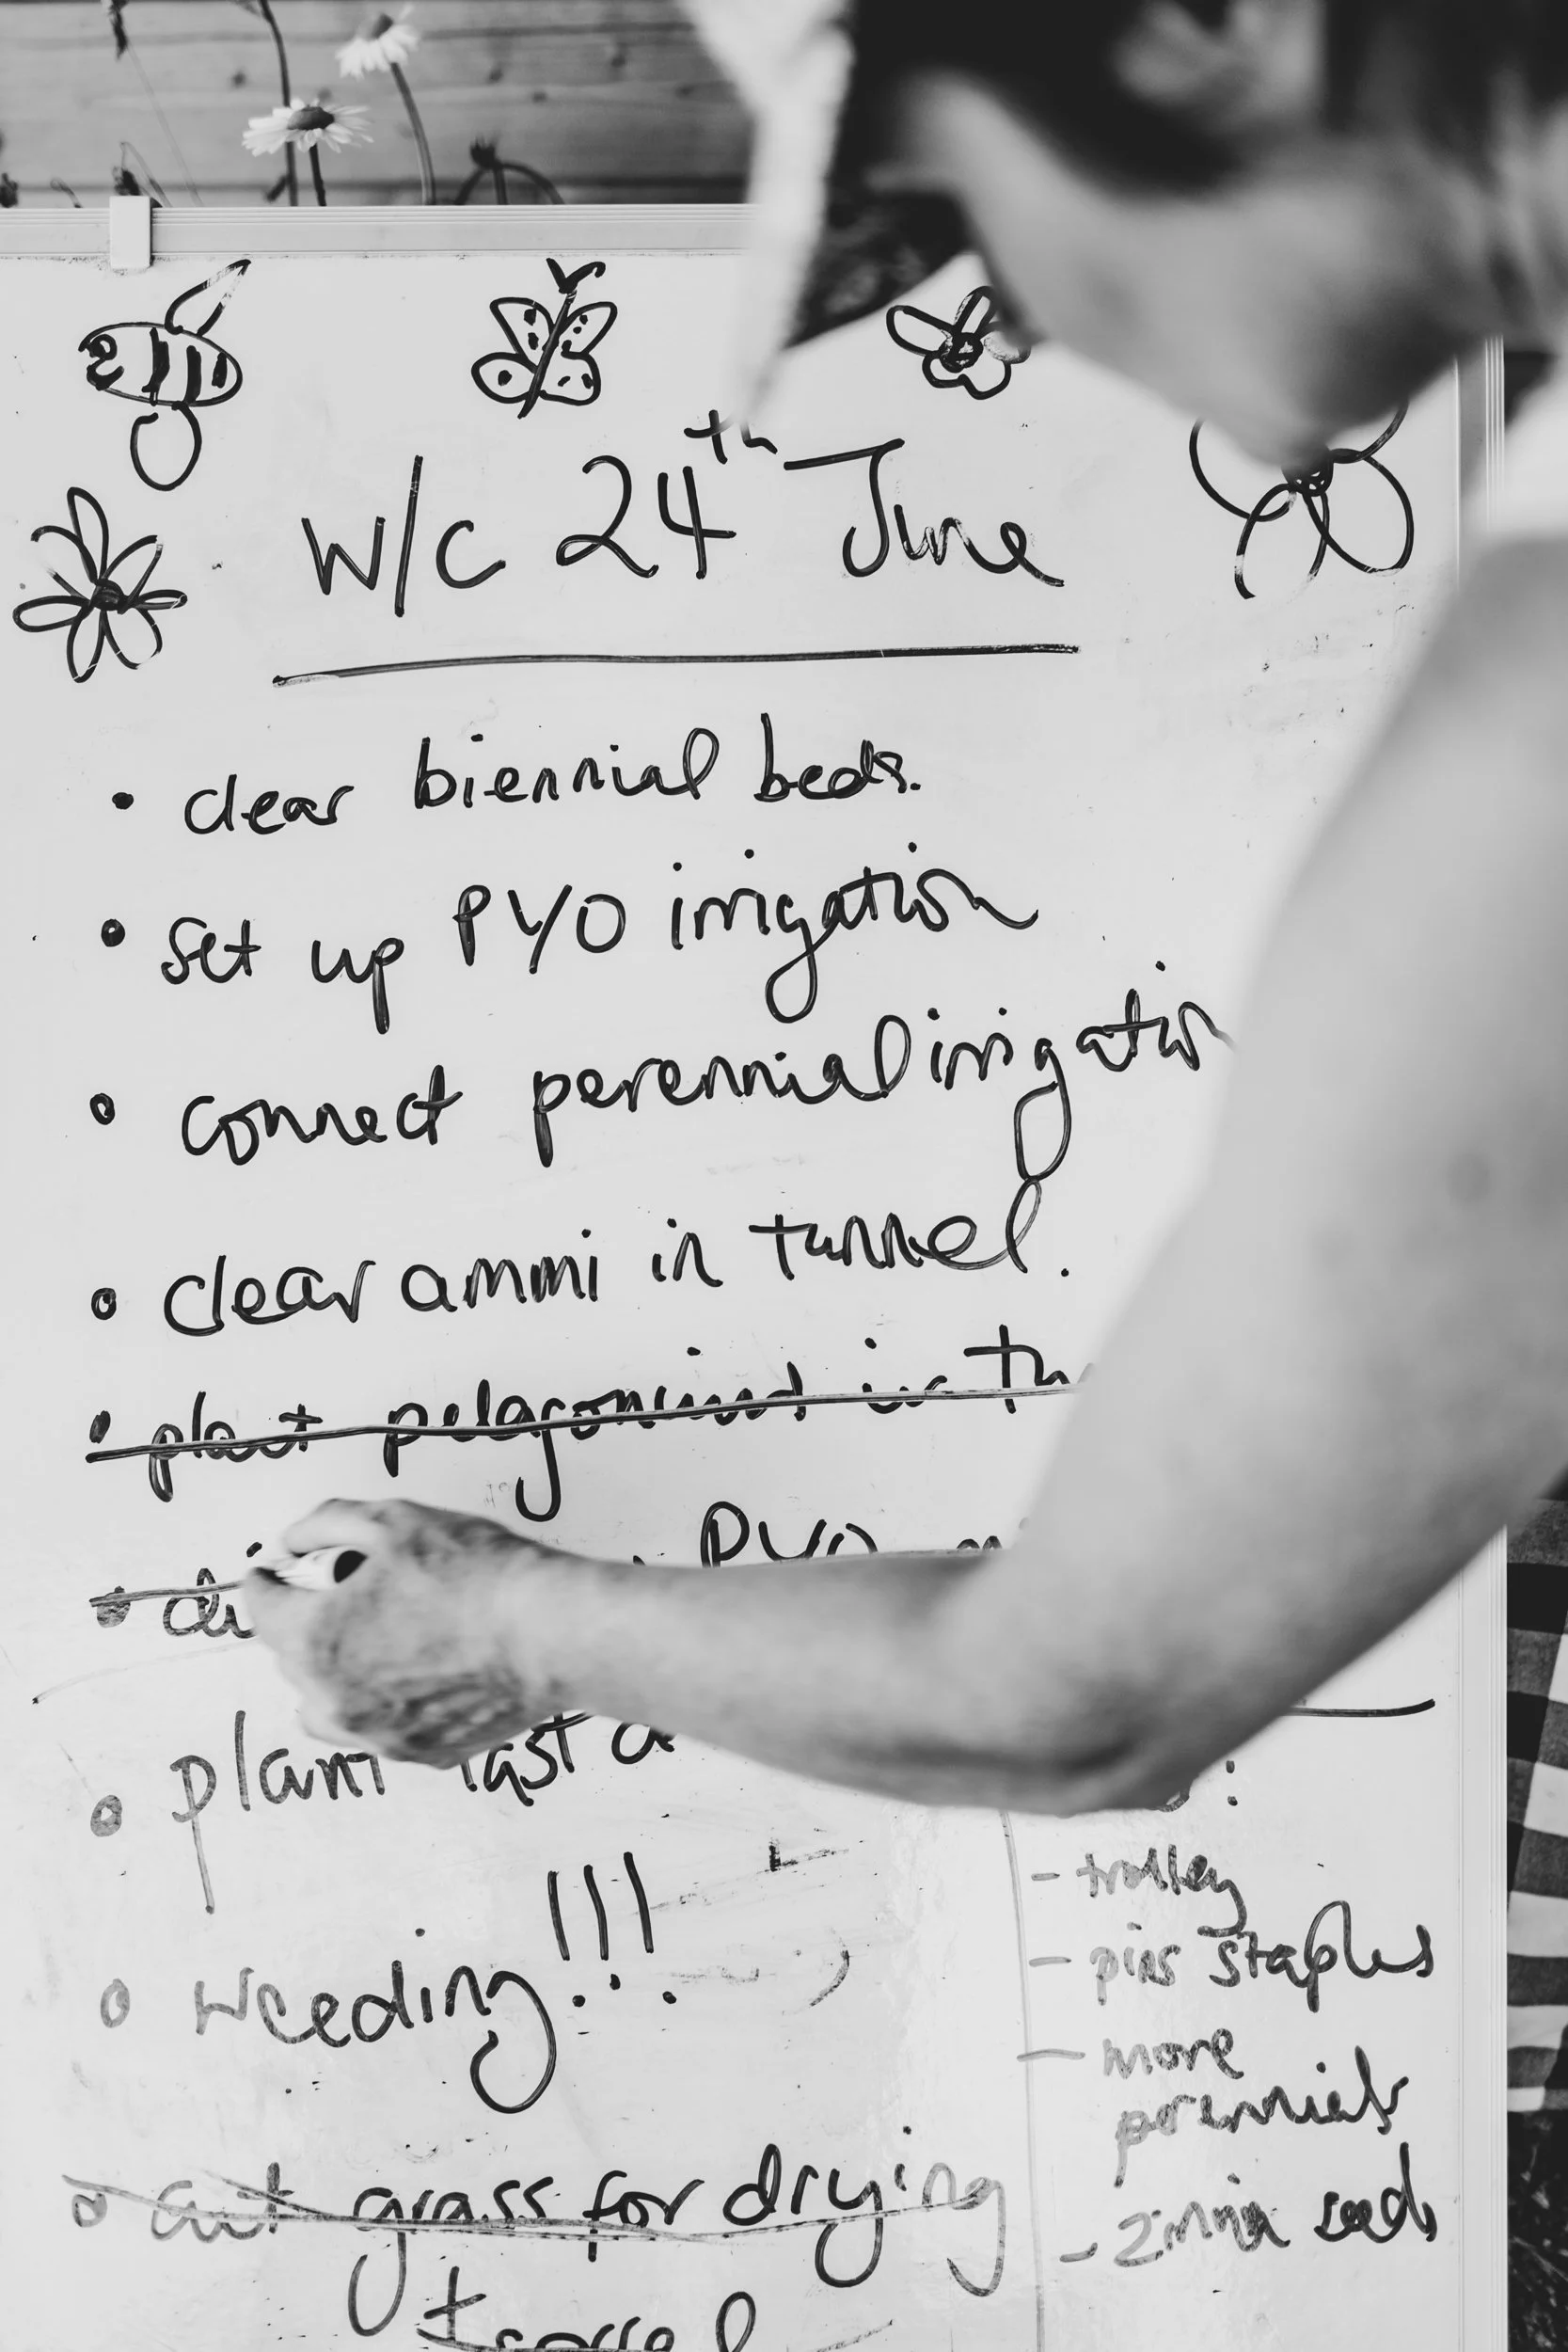 W/C 24th June
• clear biennial beds.
• set up PYO irrigation
• connect perennial irrigation
• clear ammi in tunnel.
• plant pelagoniums in
• PYO
• plant last
• weeding!!!
• cut grass for drying
+ sorrel
:
- trolley
- pins staples
- more
perennials
- zinnia seeds